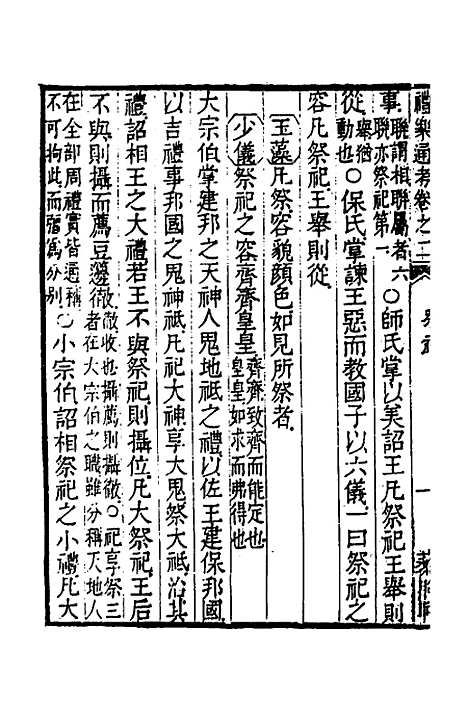 禮樂通考卷之十二
一
事聯謂相聯屬者六聯亦祭祀第一〇師氏掌以美詔王凡祭祀王舉則
從舉猶動也〇保氏掌諫王惡而教國子以六儀一曰祭祀之
容凡祭祀王舉則從
玉藻凡祭容貌顏色如見所祭者
少儀祭祀之容齊齊皇皇齊齊致齊而能定也皇皇如求而弗得也
大宗伯掌建邦之天神人鬼地祇之禮以佐王建保邦國
以吉禮事邦國之鬼神祇凡祀大神享大鬼祭大祇治其
禮詔相王之大禮若王不與祭祀則攝位凡大祭祀王后
不與則攝而薦豆籩徹徹收也攝薦則攝徹〇祀享祭三者在大宗伯之職雖分稱天地人
在全部周禮實皆通稱不可拘此而强爲分別〇小宗伯詔相祭祀之小禮凡大